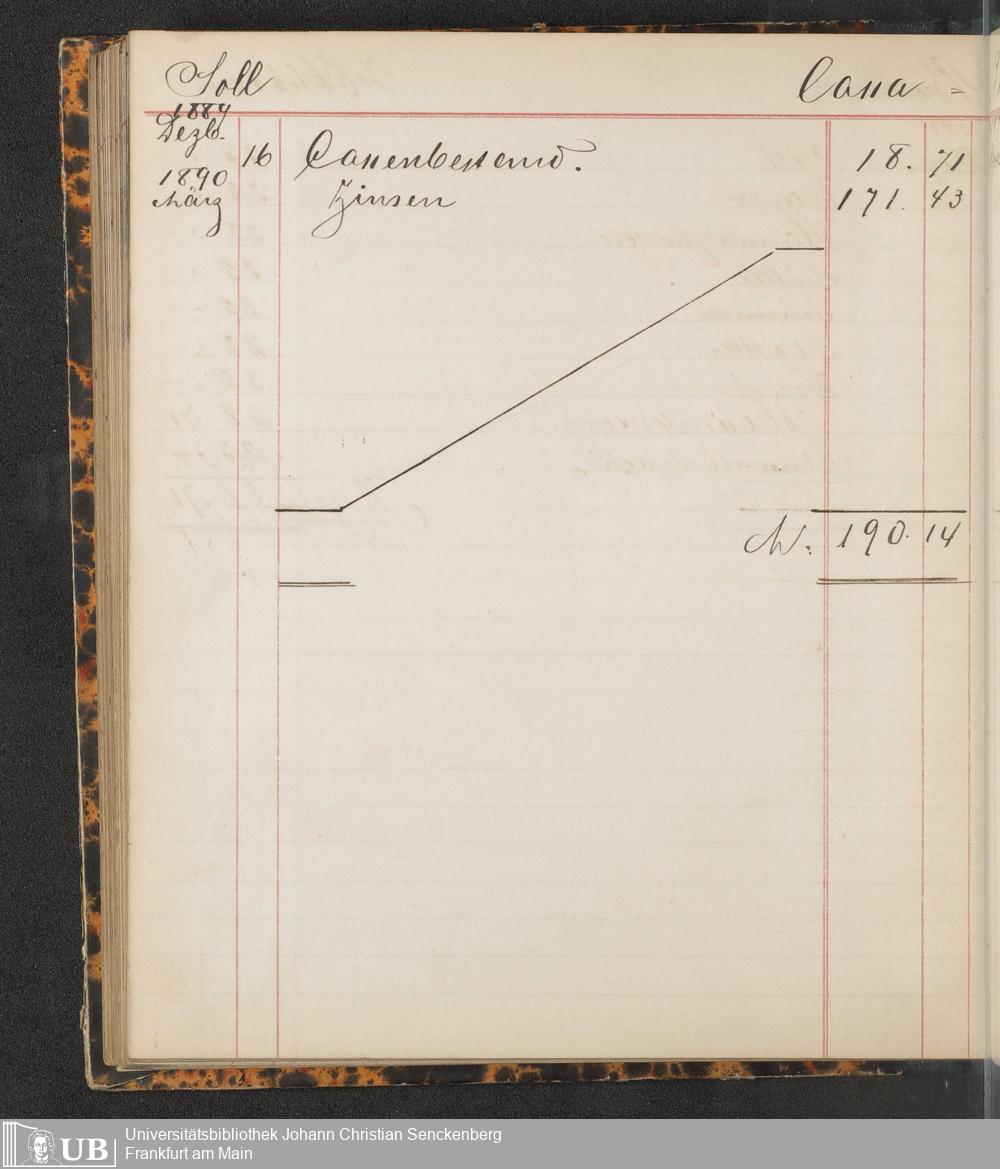 Soll Cassa =
1889
Dezb. 16 Cassenbestand. 18. 71
1890
März Zinsen 171. 43
M. 190. 14
UB
Universitätsbibliothek Johann Christian Senckenberg
Frankfurt am Main